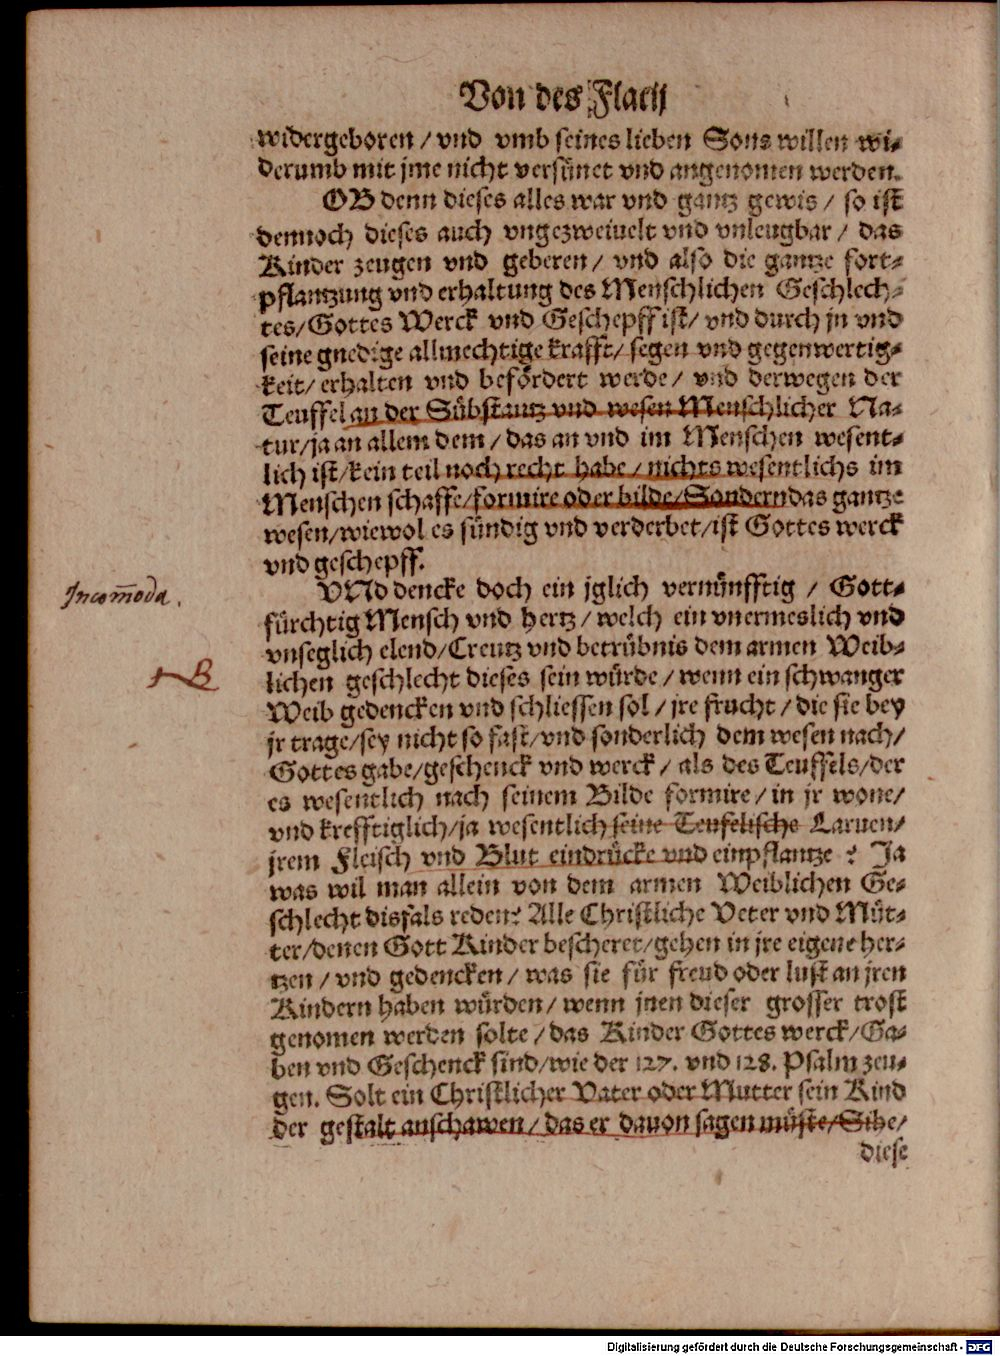 Von des Flacij
widergeboren / vnd vmb seines lieben Sons willen wi-
derumb mit jme nicht versünet vnd angenomen werden.
OB denn dieses alles war vnd gantz gewis / so ist
dennoch dieses auch vngezweiuelt vnd vnleugbar / das
Kinder zeugen vnd geberen / vnd also die gantze fort-
pflantzung vnd erhaltung des Menschlichen Geschlech-
tes / Gottes Werck vnd Geschepff ist / vnd durch jn vnd
seine gnedige allmechtige krafft / segen vnd gegenwertig-
keit / erhalten vnd befördert werde / vnd derwegen der
Teuffel an der Sübstantz vnd wesen Menschlicher Na-
tur / ja an allem dem / das an vnd im Menschen wesent-
lich ist / kein teil noch recht habe / nichts wesentlichs im
Menschen schaffe / formire oder bilde / Sondern das gantze
wesen / wiewol es sündig vnd verderbet / ist Gottes werck
vnd geschepff.
VNd dencke doch ein jglich vernünfftig / Gott-
Incom̄oda.
fürchtig Mensch vnd hertz / welch ein vnermeslich vnd
vnseglich elend / Creutz vnd betrübnis dem armen Weib-
NB
lichen geschlecht dieses sein würde / wenn ein schwanger
Weib gedencken vnd schliessen sol / jre frucht / die sie bey
jr trage / sey nicht so fast / vnd sonderlich dem wesen nach /
Gottes gabe / geschenck vnd werck / als des Teuffels / der
es wesentlich nach seinem Bilde formire / in jr wone /
vnd krefftiglich / ja wesentlich seine Teufelische Laruen /
jrem Fleisch vnd Blut eindrücke vnd einpflantze ? Ja
was wil man allein von dem armen Weiblichen Ge-
schlecht disfals reden? Alle Christliche Veter vnd Müt-
ter / denen Gott Kinder bescheret / gehen in jre eigene her-
tzen / vnd gedencken / was sie für freud oder lust an jren
Kindern haben würden / wenn jnen dieser grosser trost
genomen werden solte / das Kinder Gottes werck / Ga-
ben vnd Geschenck sind / wie der 127. vnd 128. Psalm zeu-
gen. Solt ein Christlicher Vater oder Mutter sein Kind
der gestalt anschawen / das er dauon sagen müste / Sihe /
diese
Digitalisierung gefördert durch die Deutsche Forschungsgemeinschaft - DFG